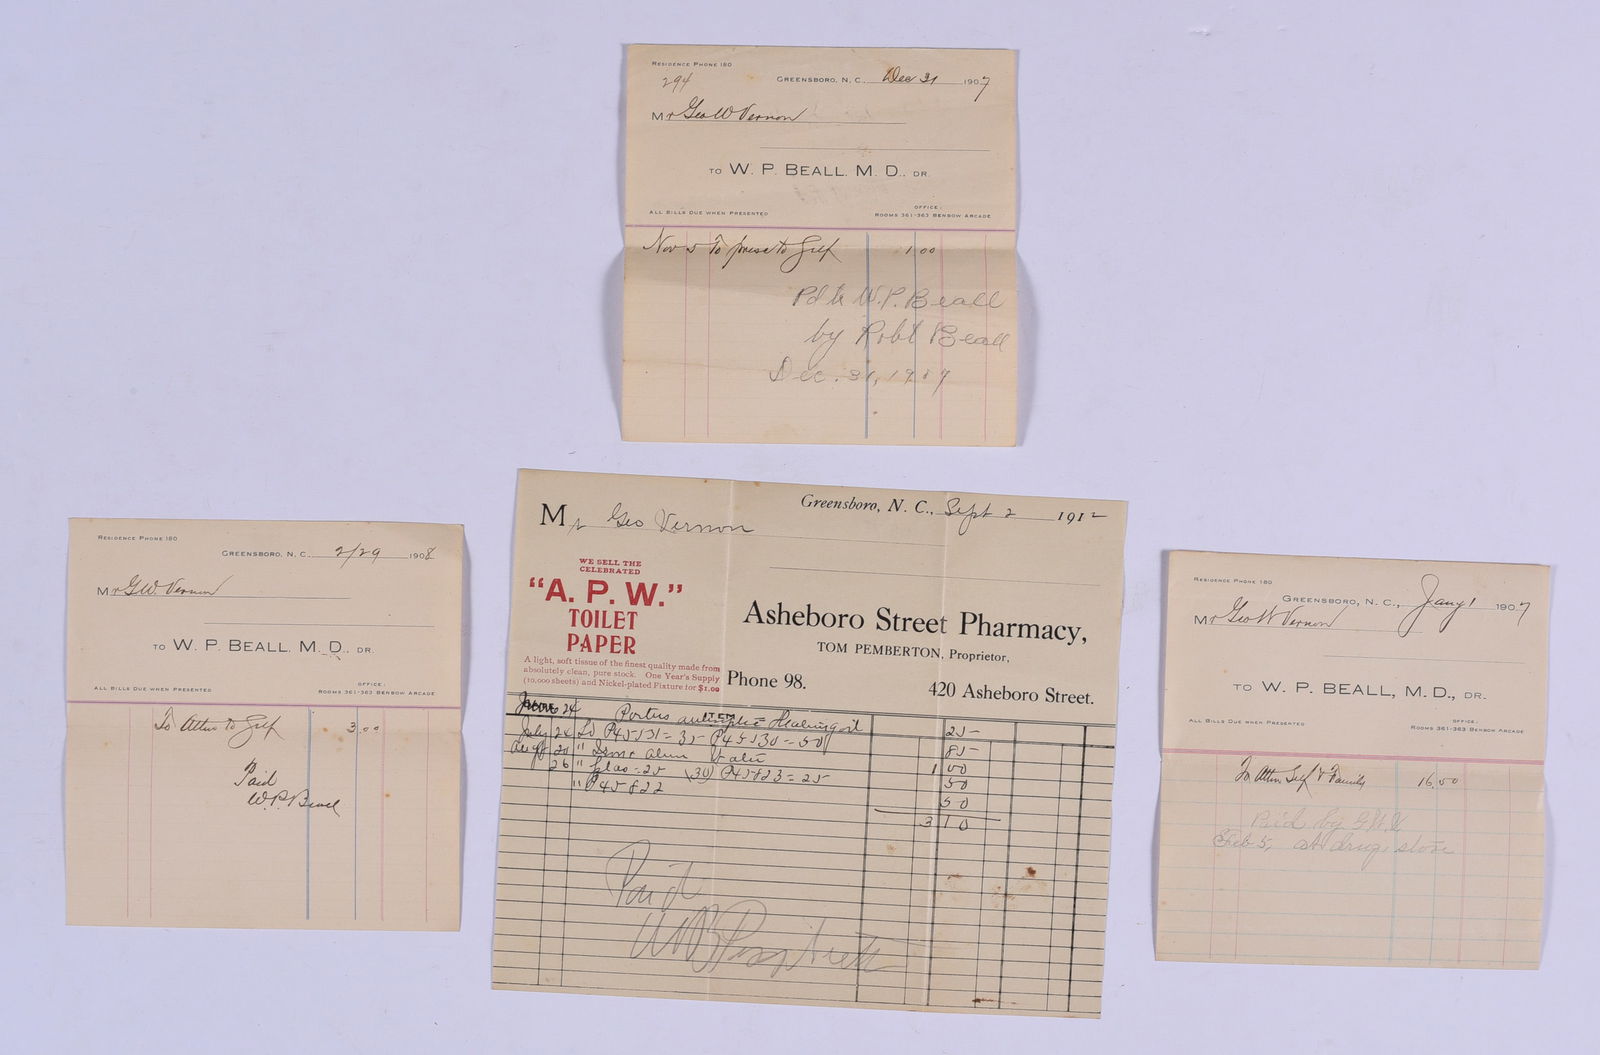 RESIDENCE PHONE 180
294
GREENSBORO, N. C., Dec 31 1907
Mr Geo W Vernon
TO W. P. BEALL, M. D., DR.
OFFICE:
ALL BILLS DUE WHEN PRESENTED ROOMS 361-363 BENBOW ARCADE
Nov 5 To presc to Self 1 00
Pd to W.P. Beall
by Robt Beall
Dec. 31, 1907
RESIDENCE PHONE 180
GREENSBORO, N. C., 2/29 1908
Mr G W. Vernon
TO W. P. BEALL, M. D., DR.
OFFICE:
ALL BILLS DUE WHEN PRESENTED ROOMS 361-363 BENBOW ARCADE
To Attn to Self 3.00
Paid
W.P. Beall
Greensboro, N. C., Sept 2 1912
Mr Geo Vernon
WE SELL THE
CELEBRATED
"A. P. W."
TOILET
PAPER
A light, soft tissue of the finest quality made from
absolutely clean, pure stock. One Year's Supply
(10,000 sheets) and Nickel-plated Fixture for $1.00
Asheboro Street Pharmacy,
TOM PEMBERTON, Proprietor,
Phone 98. 420 Asheboro Street.
ITEM
June 24 Porters antiseptic Healing oil 25
July 24 To P45131 = 35 P45130 = 50 85
Aug 20 " 1 00
26 " Glas = 25 P45823 = 25 50
" P45822 50
3 10
Paid
RESIDENCE PHONE 180
GREENSBORO, N. C., Jany 1 1907
Mr Geo W Vernon
TO W. P. BEALL, M.D., DR.
OFFICE:
ALL BILLS DUE WHEN PRESENTED ROOMS 361-363 BENBOW ARCADE
To Attn Self & Family 16.50
Paid by
Feb 5, at drug store